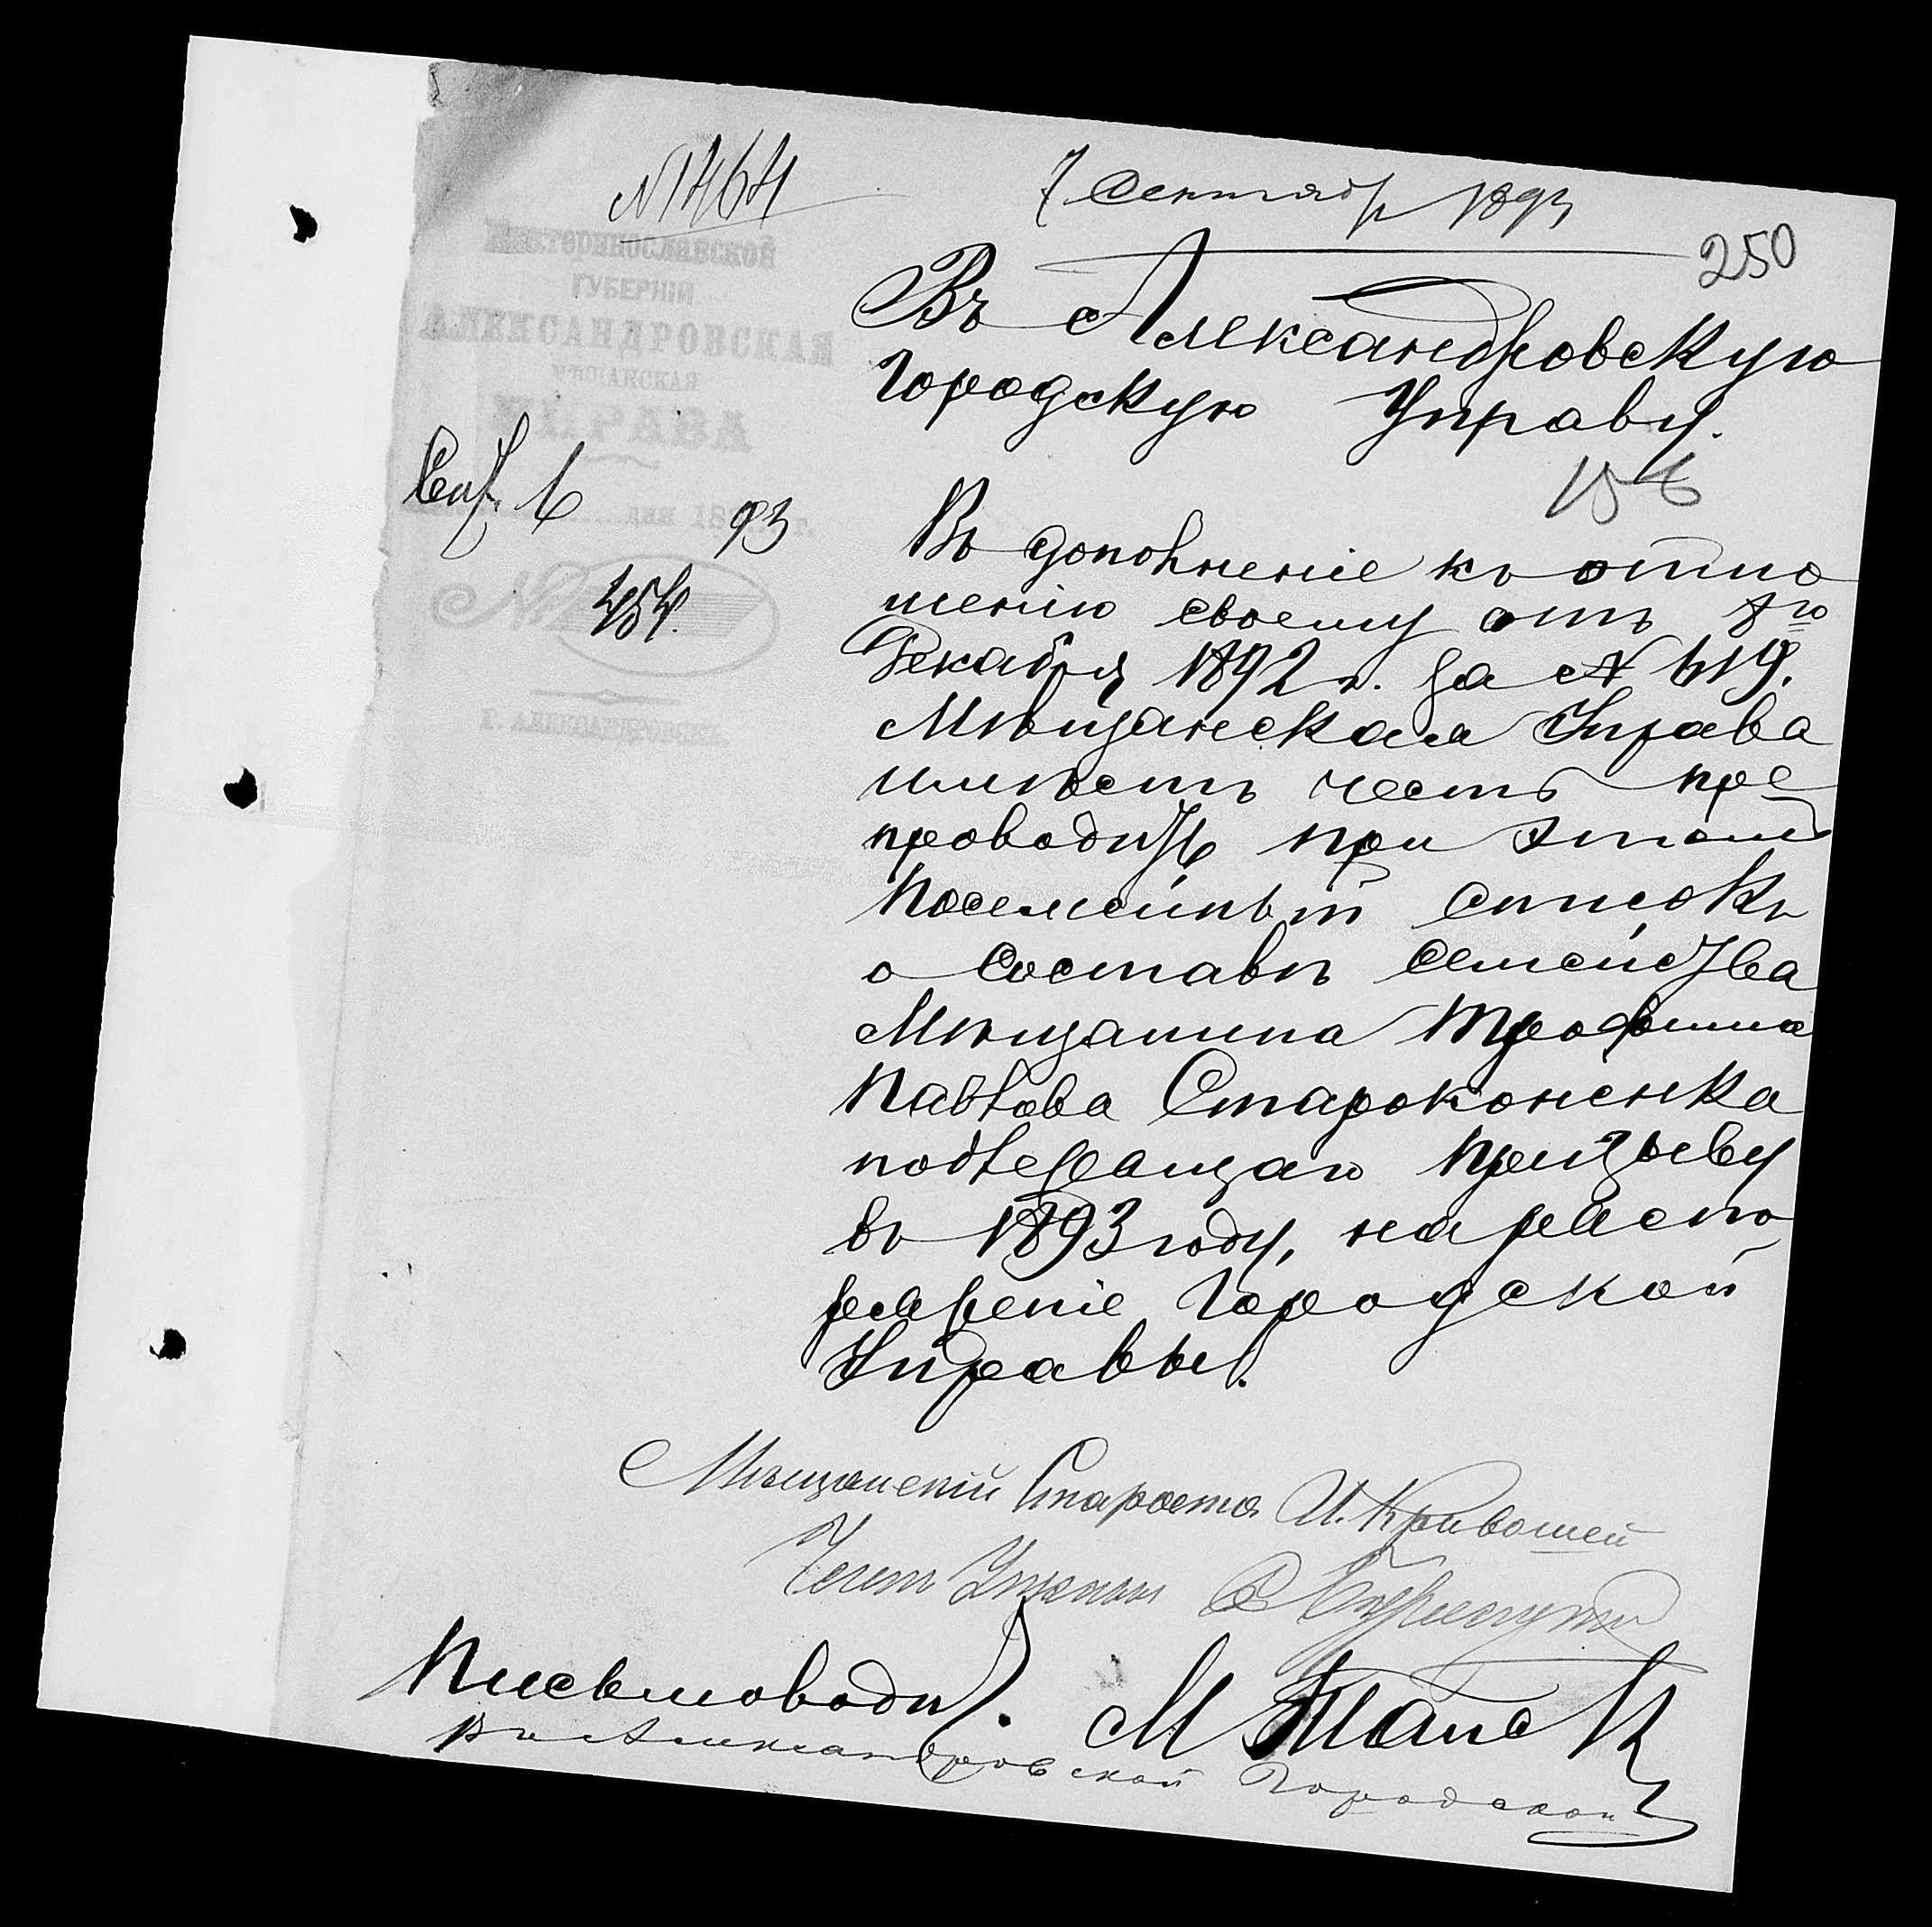 № 1464
7 Сентябр 1893
250
Екатеринославской
ГУБЕРНІИ
АЛЕКСАНДРОВСКАЯ
МѢЩАНСКАЯ
УПРАВА
Въ Александровскую
Городскую Управу.
Сен. 6 дня 1893 г.
№ 454.
Г. АЛЕКСАНДРОВСКЪ.
Въ дополненіе къ отно
шенію своему отъ 7го
Декабря 1892 г. за № 619.
Мѣщанская Управа
имѣетъ честь пре
проводить при этомъ
посемейный списокъ
о составѣ семейства
Мѣщанина Трофима
Павлова Староконенка
подлежащаго призыву
въ 1893 году, на распо
ряженіе Городской
Управы.
Мѣщанскій Староста И. Кривошей
Члетъ Управы
Письмоводи.
Въ Александровской Городской